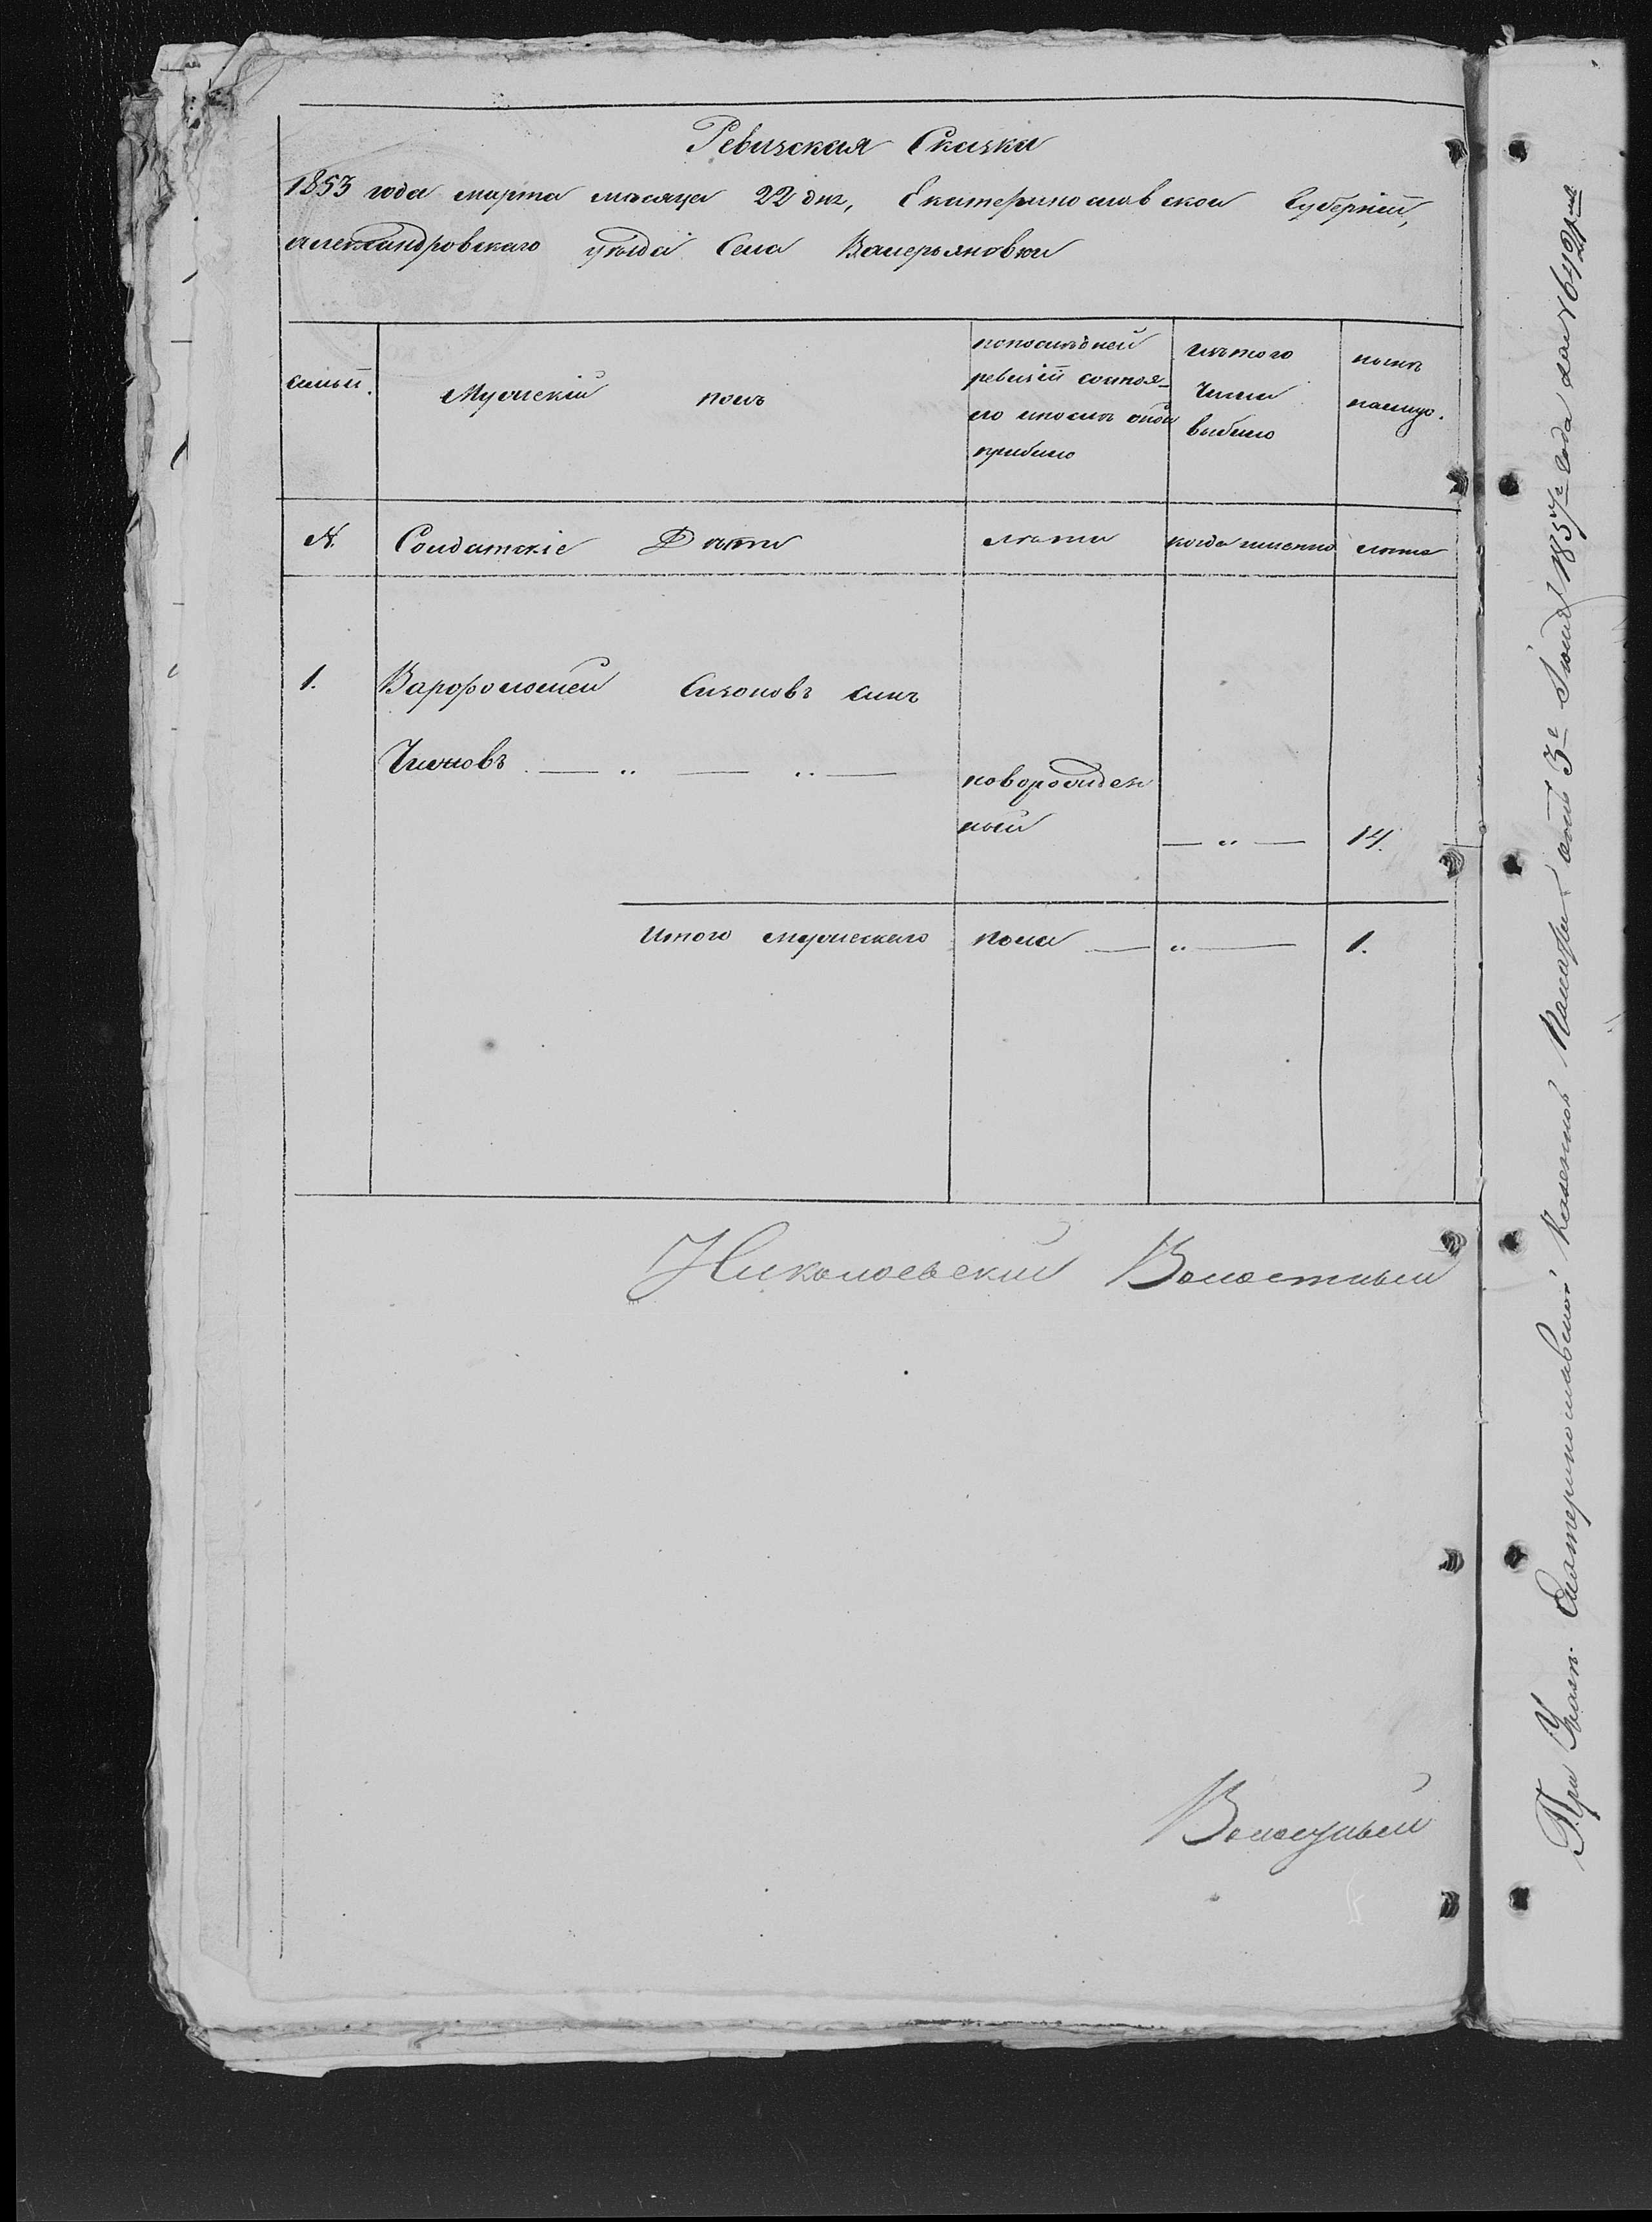 Ревизская Сказка
1853 года марта месяца 22 дня, Екатеринославской Губерніи,
Александровскаго уезда Села Валерьяновки
семьи.
Мужескій полъ
попоследней
ревизіи состоя-
ло ипосле оной
прибыло
изтого
Числа
выбыло
ныне
налицо.
№.
Солдатскіе Дети
лета
когда именно
лета
1.
Варфоломей Сизоновъ сынъ
Чижовъ. — „ — „ —
новорожден
ный
— „ —
14.
Итого мужескаго пола — „ — 1.
Николаевскій Волостный
Волостный
При Указе Екатеринославской Казенной Палаты отъ 3го Іюня 1857го года за №